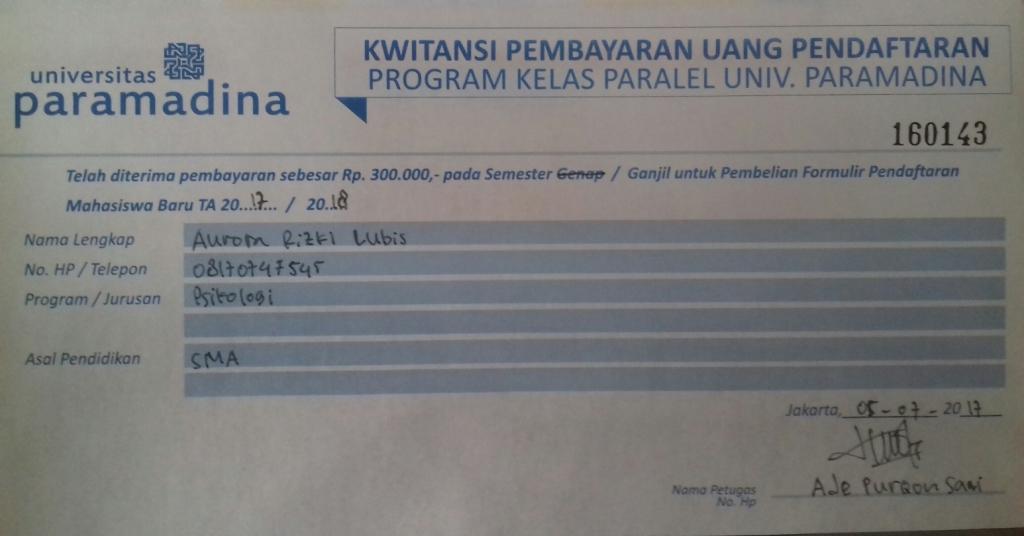 universitas
paramadina
KWITANSI PEMBAYARAN UANG PENDAFTARAN
PROGRAM KELAS PARALEL UNIV. PARAMADINA
160143
Telah diterima pembayaran sebesar Rp. 300.000,- pada Semester Genap / Ganjil untuk Pembelian Formulir Pendaftaran
Mahasiswa Baru TA 20..17... / 20.18
Nama Lengkap Aurora Rizki Lubis
No. HP / Telepon 08170747545
Program / Jurusan Psikologi
Asal Pendidikan SMA
Jakarta, 05-07-2017
Nama Petugas Ade Purqon Sari
No. Hp